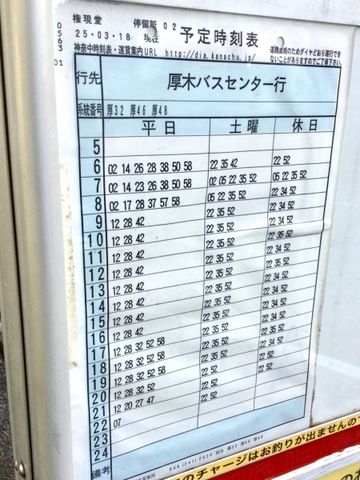 権現堂 停留所 02
25-03-18 現在 予定時刻表
神奈中時刻表・運賃案内URL http://dia.kanachu.jp/
道路状況のためダイヤどおり運行できないことがありますのでご了承下さい。
0563
01
行先 厚木バスセンター行
系統番号 厚32 厚46 厚48
平日 土曜 休日
5
6 02 14 26 28 38 50 58 22 35 42 22 52
7 02 14 26 28 38 50 58 02 05 22 35 52 05 22 35 52
8 02 17 28 37 57 58 05 22 35 52 22 34 52
9 12 28 42 22 35 52 22 34 52
10 12 28 42 22 35 52 22 35 52
11 12 28 42 22 35 52 22 34 52
12 12 28 42 22 35 52 22 34 52
13 12 28 42 22 35 52 22 35 52
14 12 28 42 22 35 52 22 34 52
15 12 28 42 22 35 52 22 34 52
16 12 28 32 52 58 22 35 52 22 35 52
17 12 28 32 52 58 22 35 52 22 34 52
18 12 28 32 52 58 22 35 52 22 34 52
19 12 28 32 52 22 52 22 52
20 12 20 27 47 22 52 22 52
21 07
22
23
24
備考
のチャージはお釣りが出ませんの